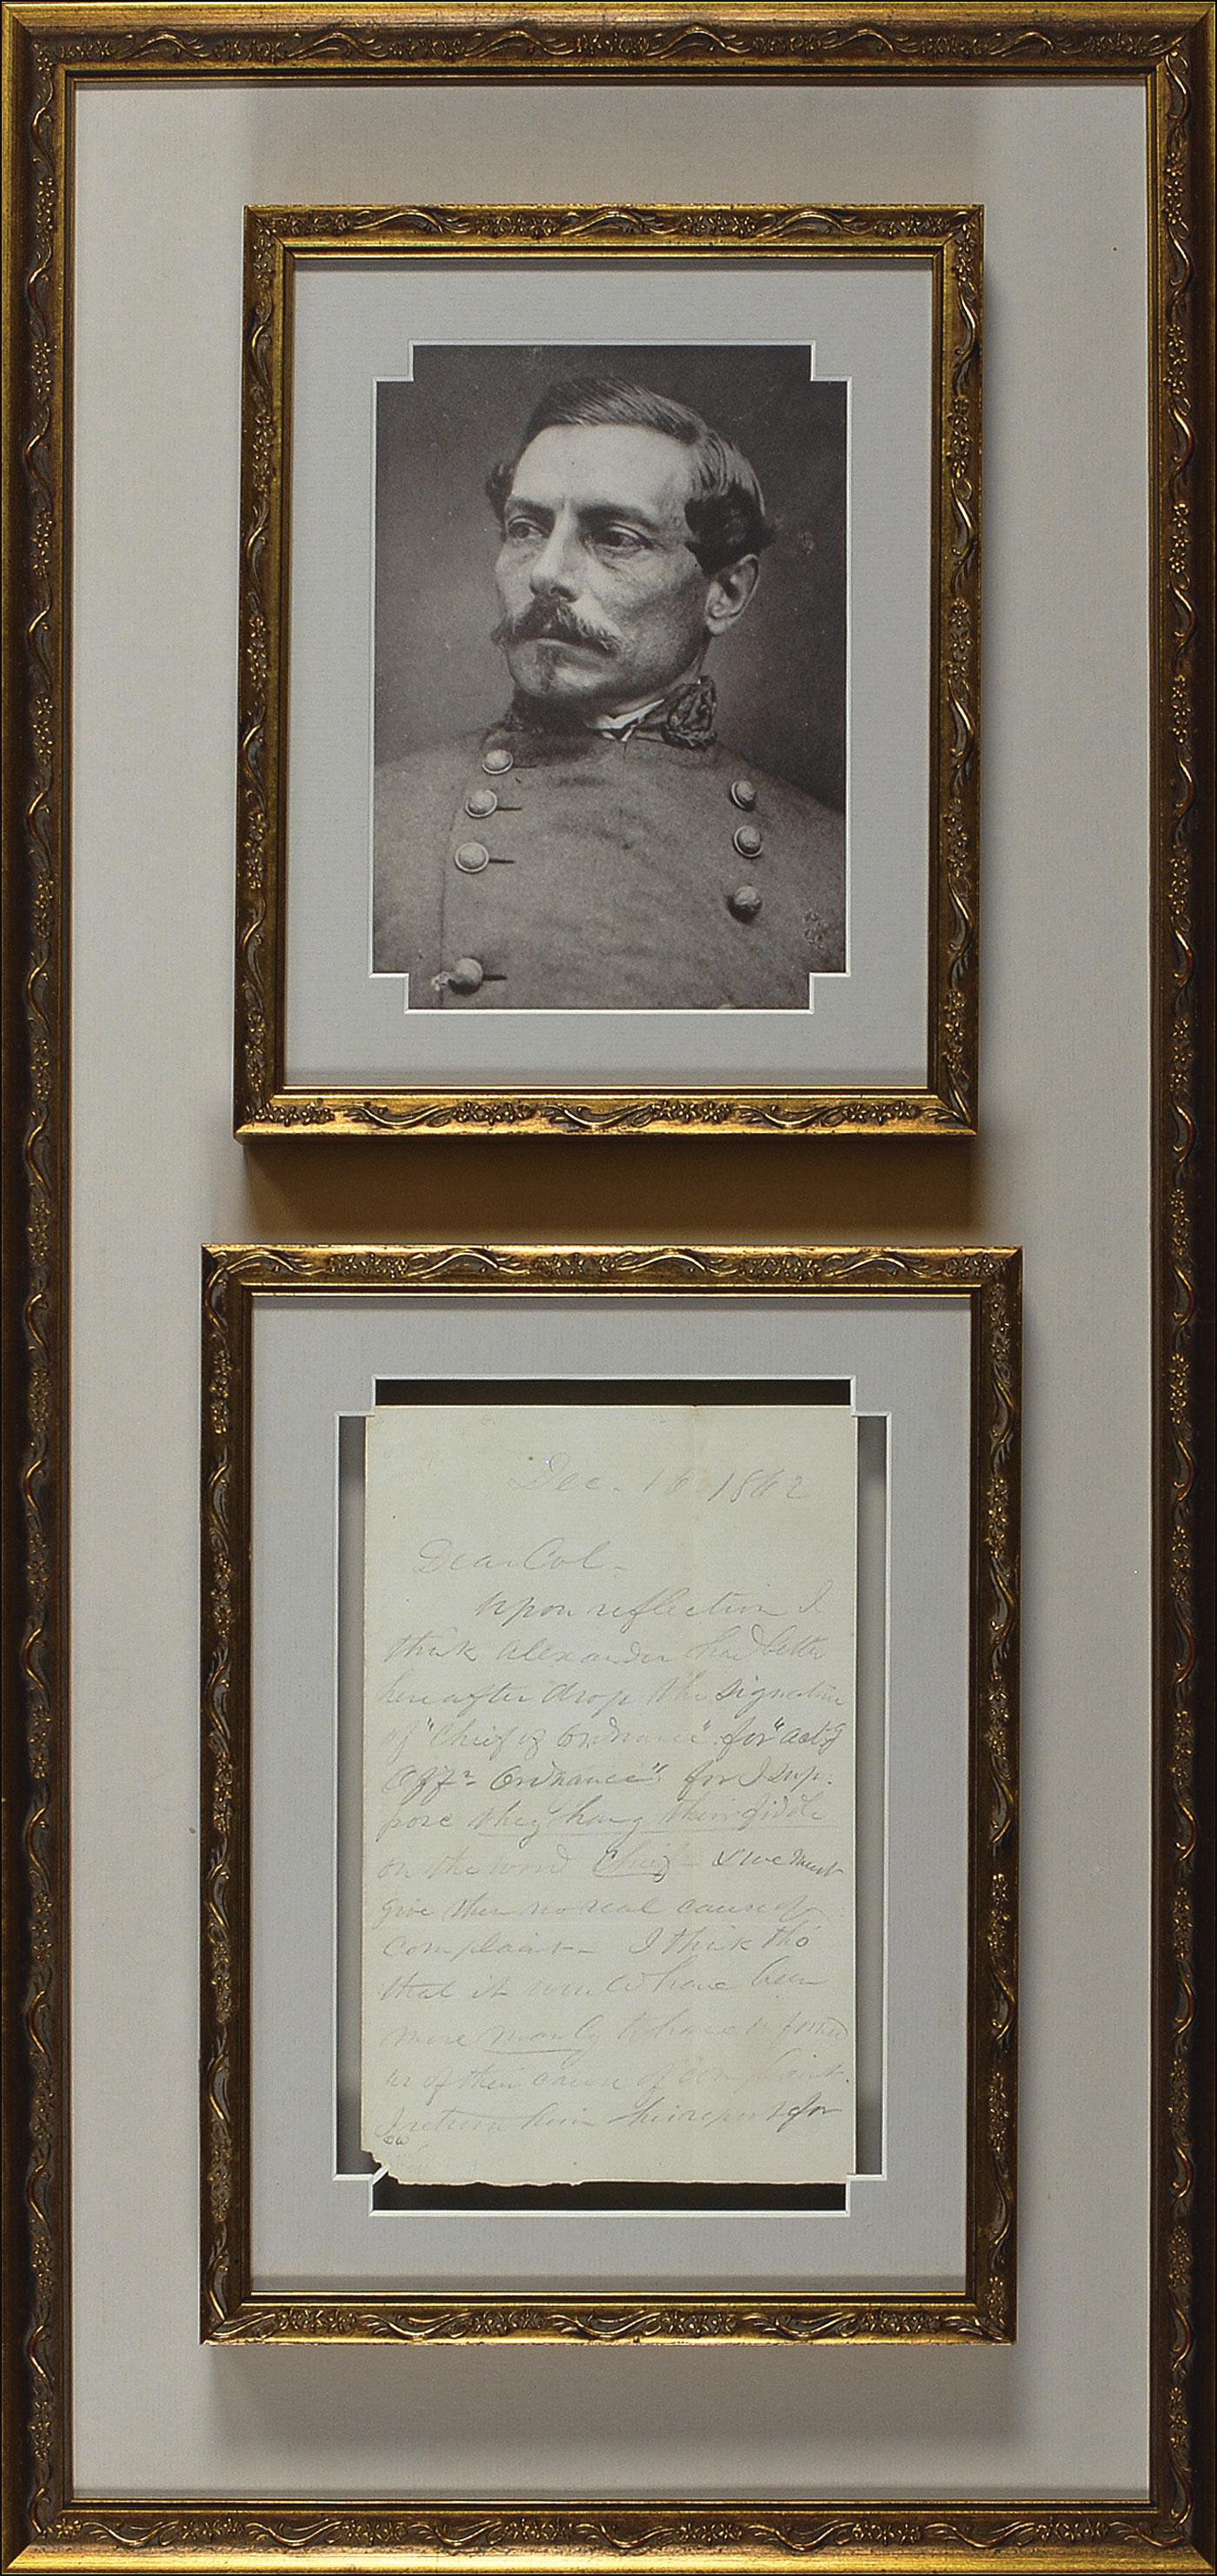 Dec. 16 1862
Dear Col -
Upon reflection I
think Alexander had better
hereafter drop the signature
of "Chief of Ordnance" for "actg
Offr Ordnance", for I sup-
pose they hang their fiddle
on the word Chief - & we must
give them no real cause of
complaint - I think tho'
that it would have been
more manly to have informed
us of their cause of complaint.
I return him his report for